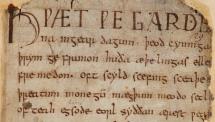 HǷÆT ǷE GARD
na ingear dagum þeod cyninga
þrym ge frunon huða æþelingas elle
fremedon. oft scyld scefing sceaþe
þreatum monegū mægþum meodo setl
of teah egsode eorl syððan ærest